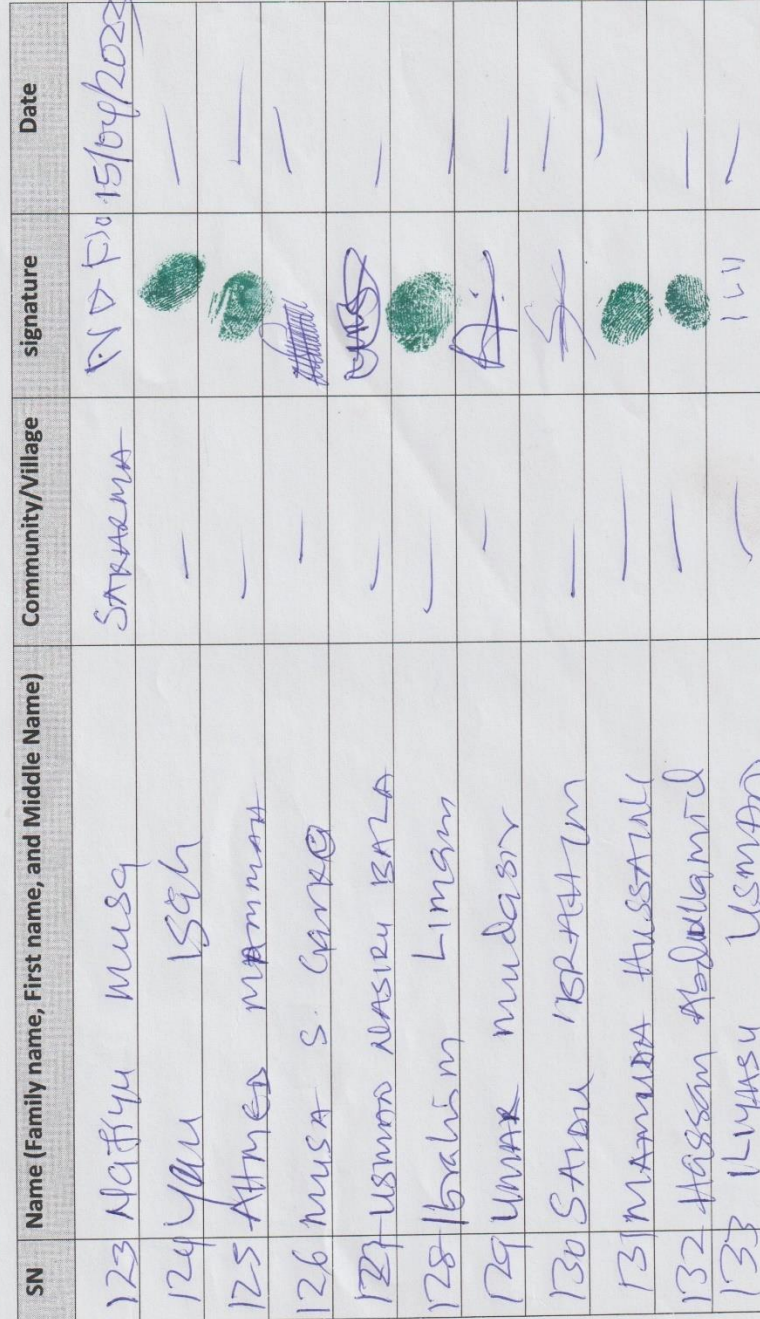 SN Name (Family name, First name, and Middle Name) Community/Village signature Date
123 Nafiyu Musa SAKARMA 15/04/2022
124 Yau Isah — —
125 AHMED MAMMAH — —
126 MUSA S. Garko — —
127 USMAN NASIRU BALA — —
128 Ibrahim Limam — —
129 UMAR mudasir — —
130 SAIDU IBRAHIM — —
131 MAMUDA HUSSAINI — —
132 Hassan Abdulhamid — —
133 ILIYASU USMAN — —